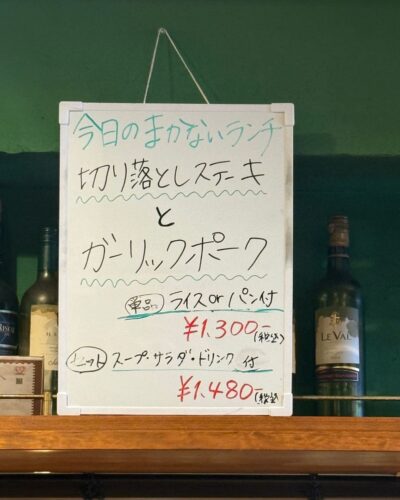 今日のまかないランチ
切り落としステーキ
と
ガーリックポーク
単品 ライスorパン付
¥1.300-(税込)
セット スープ・サラダ・ドリンク付
¥1.480-(税込)
LE VAL